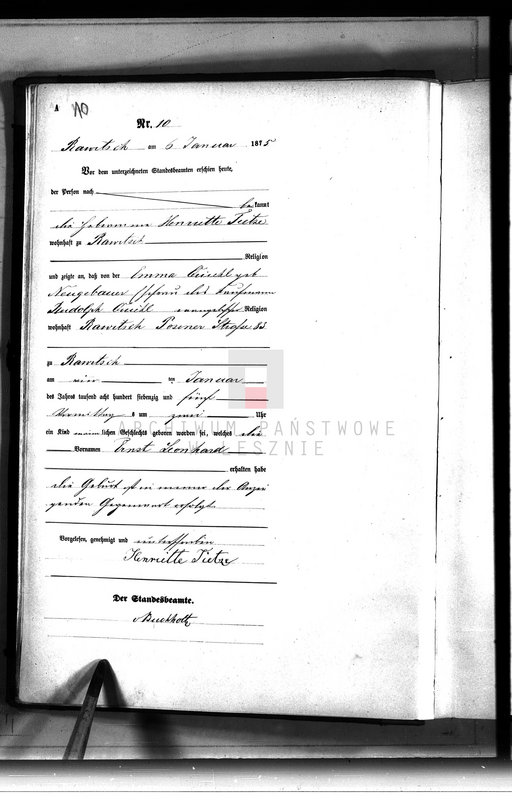 A 10
Nr. 10
Rawitsch am 6 Januar 1875
Vor dem unterzeichneten Standesbeamten erschien heute,
der Person nach
bekannt
die Hebamme Henriette Tietze
wohnhaft zu Rawitsch
Religion
und zeigte an, daß von der Emma geb
Neugebauer Ehefrau des Kaufmann
Rudolph evangelischer Religion
wohnhaft Rawitsch Posener Straße 85
zu Rawitsch
am vier ten Januar
des Jahres tausend acht hundert siebenzig und fünf
Vormittag s um zwei Uhr
ein Kind männlichen Geschlechts geboren worden sei, welches die
Vornamen Ernst Leonhard
erhalten habe
die Geburt ist in meiner der Anzei
genden Gegenwart erfolgt
Vorgelesen, genehmigt und unterschrieben
Henriette Tietze
Der Standesbeamte.
Buckholtz
ARCHIWUM PAŃSTWOWE
W LESZNIE